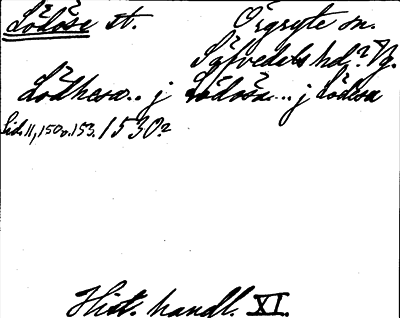 Lödöse st. Örgryte sn.
Säfvedels hd? Vg.
Lödhesa.. j Lödosa... j Lödesa
Sid. 11, 150 o. 153. 1530?
Hist. handl. XI.